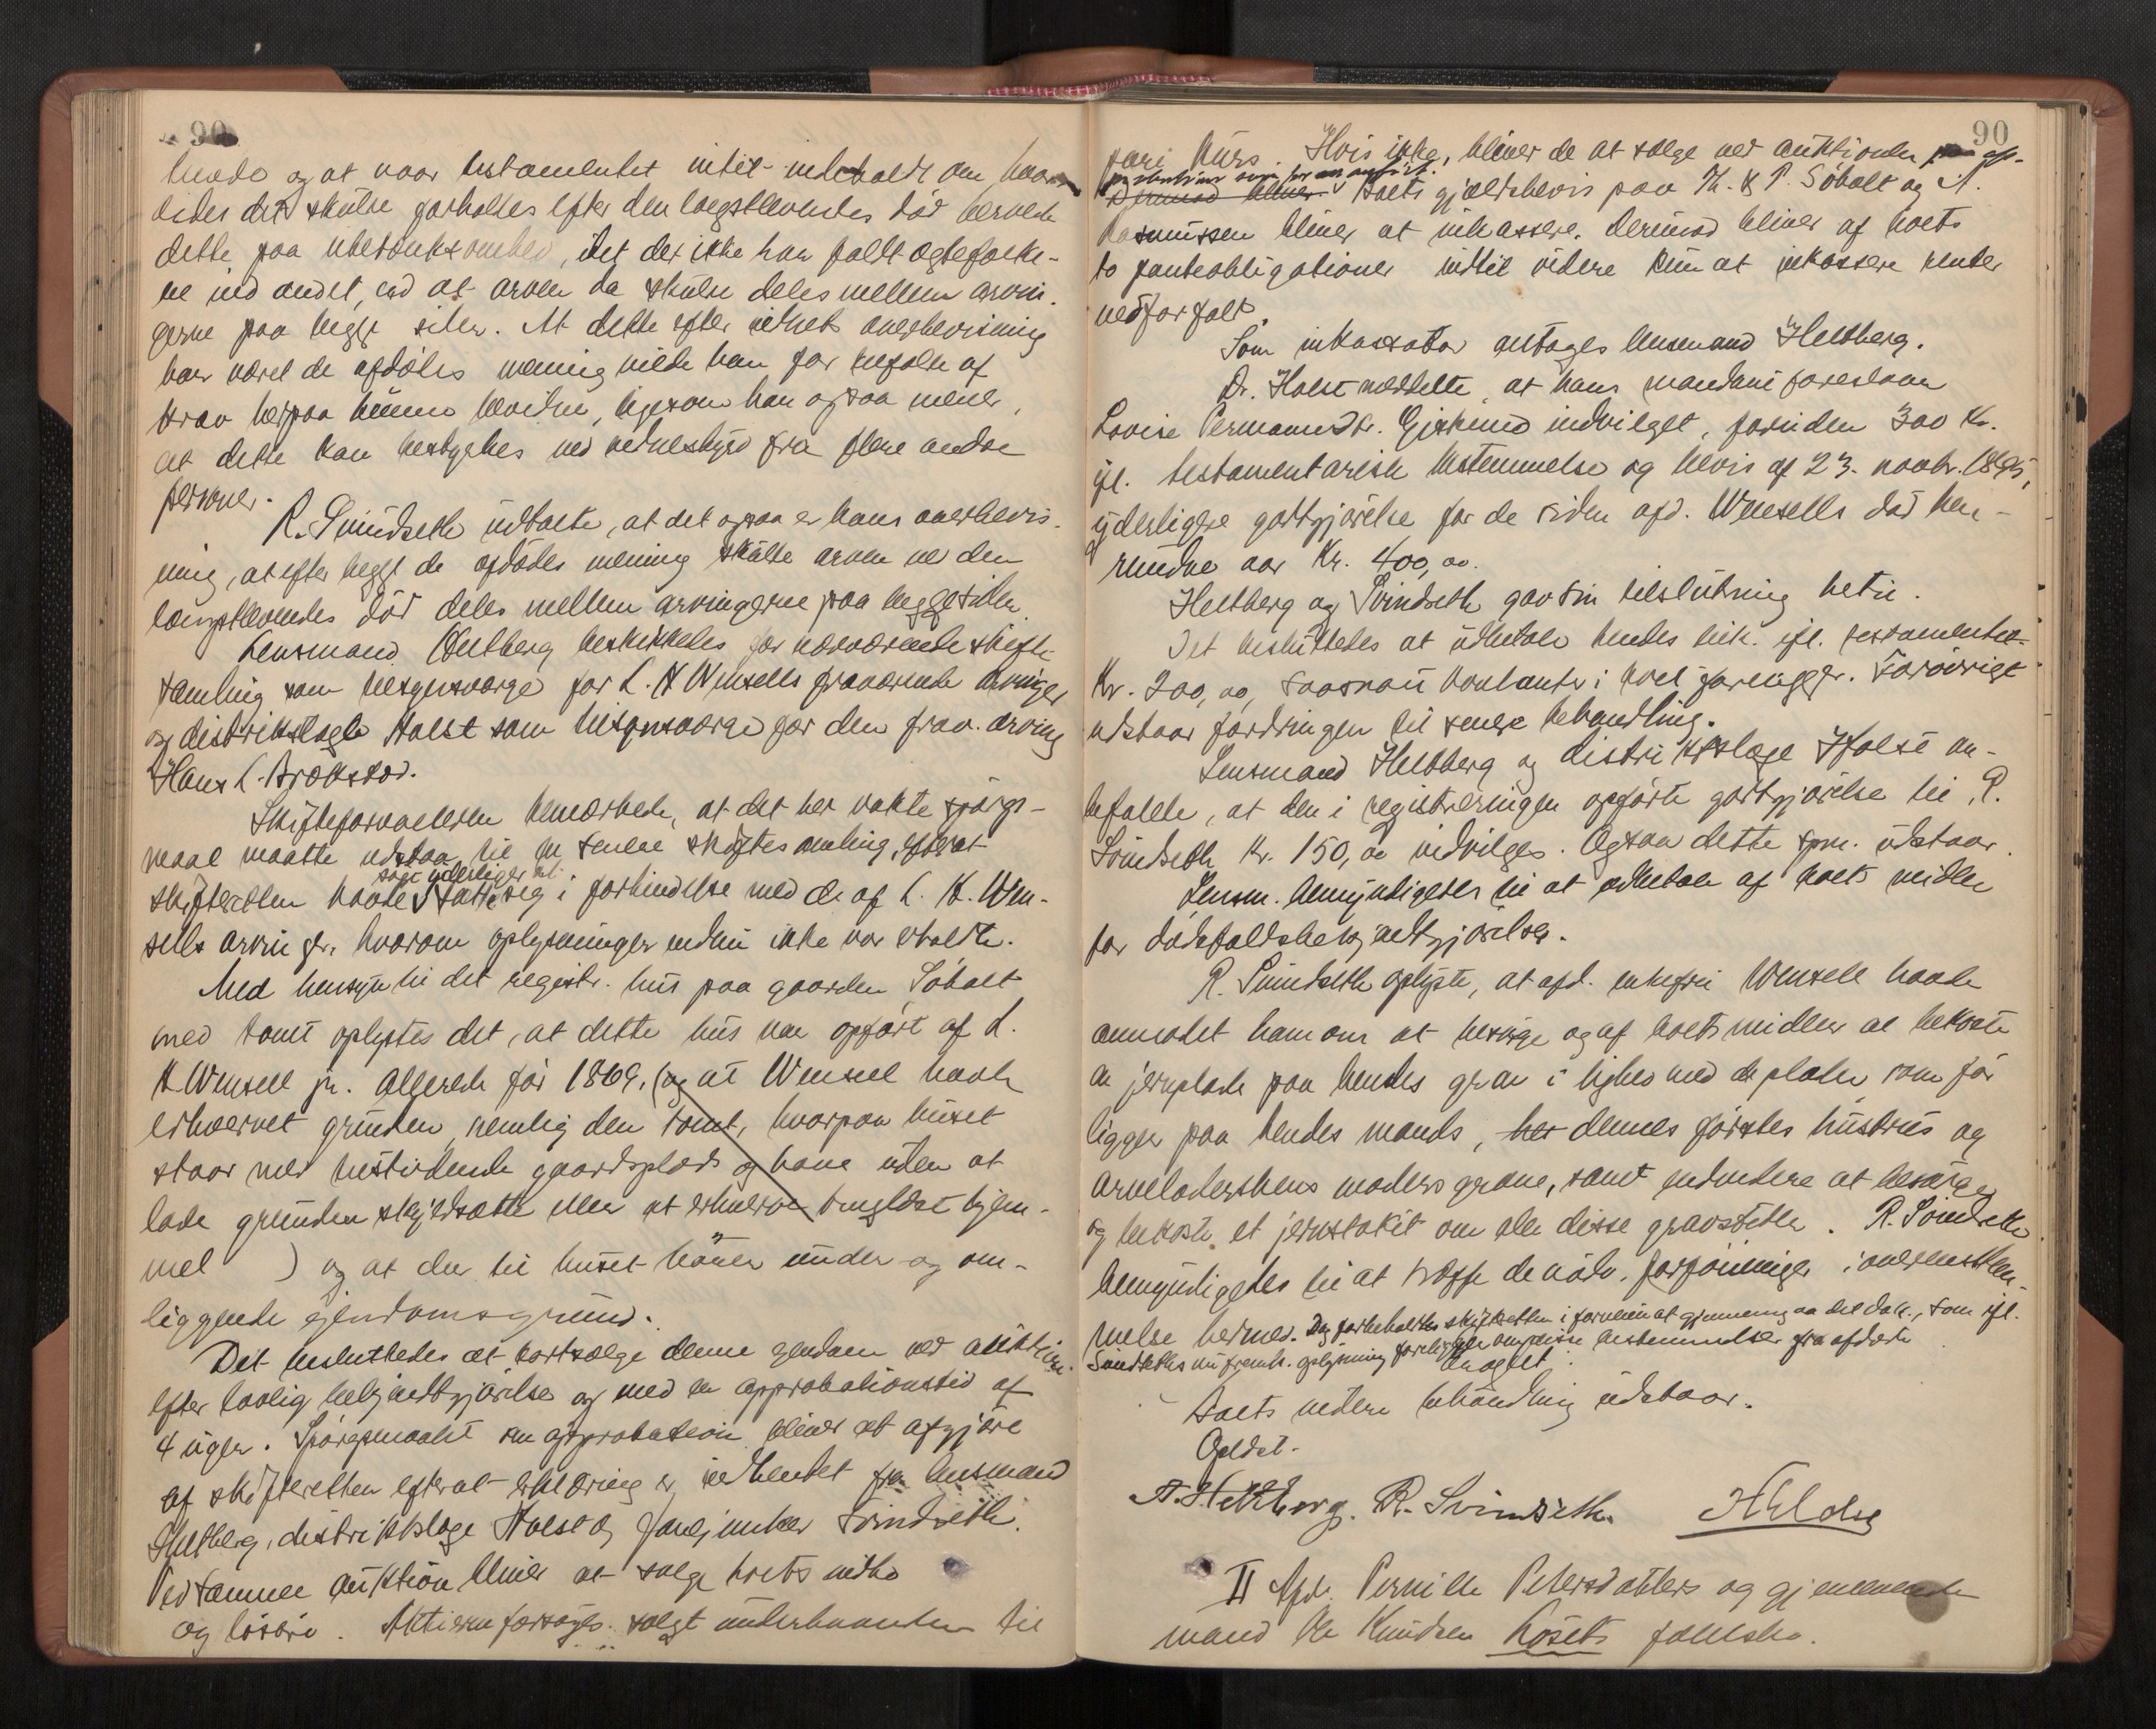 90
hende og at naar testamentet intet indeholdt om, hvor-
ledes det skulde forholdes efter den længstlevendes død beroede
dette paa ubetænksomhed, idet det ikke har faldt ægtefolke-
ne ind andet, end at arven da skulde deles mellem arvin-
gerne paa begge sider. At dette efter vidnets overbevisning
har været de afdødes mening vilde han for tilfælde af
krav herpaa kunne beedige, ligesom han ogsaa mener,
at dette kan bestyrkes ved vidnesbyrd fra flere andre
personer.
R. Svindseth udtalte, at det ogsaa er hans overbevis-
ning, at efter begge de afdødes mening skulde arven ved den
længstlevendes død deles mellem arvingerne paa begge sider.
Lensmand Heltberg beskikkedes for nærværende skifte-
samling som tilsynsværge for L. K Wensells fraværende arvinger
og distriktslæge Holst som tilsynsværge for den frav. arving
Hans L. Brokstad.
Skifteforvalteren bemærkede, at det her vakte spørgs-
maal maatte udstaa til en senere skiftesamling, efterat
skifteretten havde sat sig i forbindelse med de af L. K. Wen-
sells arvinger, hvorom oplysninger endnu ikke var erholdte.
Med hensyn til det registr. hus paa gaarden Søholt
med tomt oplystes det, at dette hus var opført af L.
K Wensell jr. allerede før 1869, (og at Wensell havde
erhvervet grunden, nemlig den tomt, hvorpaa huset
staar med tilstødende gaardsplads og have uden at
lade grunden skyldsætte eller at erhverve tinglæst hjem-
mel ) og at der til huset hører under- og om-
liggende ejendomsgrund.
Det besluttedes at bortsælge denne ejendom ved auktion
efter lovlig bekjendtgjørelse og med en approbationstid af
4 uger. Spørgsmaalet om approbation bliver at afgjøre
af skifteretten efterat erklæring er indhentet fra lensmand
Heltberg, distriktslæge Holst og Svindseth.
Ved samme auktion bliver at sælge boets indbo
og løsøre. Aktierne forsøges solgt underhaanden til
90
pari kurs. Hvis ikke, bliver de at sælge ved auktionen
Boets gjældsbevis paa K. & P. Søholt og A.
Rasmussen bliver at inkassere. Derimod bliver af boets
to panteobligationer indtil videre kun at inkassere renter
ved forfald.
Som inkassator antages lensmand Heltberg.
Dr. Holst meddelte, at hans mandant foreslaar
Lovise Permannsdr. Gjskund indvilget, foruden 300 Kr.
ifl. testamentarisk bestemmelse og bevis af 23. novbr. 1895,
yderligere godtgjørelse for de siden afd. Wensells død hen-
rundne aar Kr. 400,00.
Heltberg og Svindseth gav sin tilslutning hertil.
Det besluttedes at udbetale hendes tilk. ifl. testamentet
Kr. 300,00, saasnart kontanter i boet foreligger. Forøvrigt
udstaar fordringen til senere behandling.
Lensmand Heltberg og distriktslæge Holst an-
befalede, at den i registreringen opførte godtgjørelse til R.
Svindseth Kr. 150,00 indvilges. Ogsaa dette spm. udstaar.
Lensm. bemyndigedes til at udbetale af boets midler
for dødsfaldsbekjendtgjørelser.
R. Svindseth oplyste, at afd. enkefru Wensell havde
anmodet ham om at besørge og af boets midler at bekoste
en jernplade paa hendes grav i lighed med de plader, som før
ligger paa hendes mands, dennes førstes hustrus og
arveladerskens moders grave, samt endvidere at besørge
og bekoste et jernstakit om alle disse gravsteder. R. Svindseth
bemyndigedes til at træffe de nødv. forføininger i overensstem-
melse hermed. Dog forbeholdes skifteretten i fornøden at gjennemgaa det dok., som ifl.
Svindseths nu fremk. oplysning foreligger om disse bestemmelser fra afdøde
Boets videre behandling udstaar.
Oplæst.
A. Heltberg. R. Svindseth.
II Afd. Pernille Petersdatters og gjenlevende
mand Ole Knudsen Røsets fællesbo.